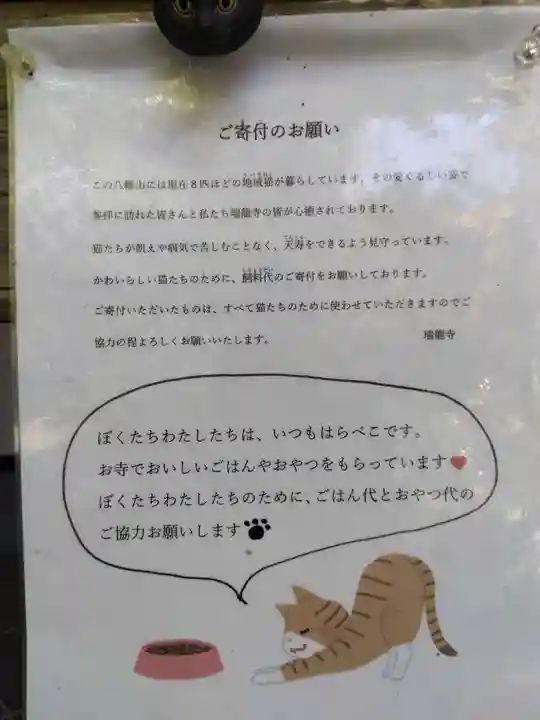 ご寄付のお願い
この八幡山には現在８匹ほどの地域猫が暮らしています。その愛くるしい姿で
参拝に訪れた皆さんと私たち瑞龍寺の皆が心癒されております。
猫たちが飢えや病気で苦しむことなく、天寿をできるよう見守っています。
かわいらしい猫たちのために、飼料代のご寄付をお願いしております。
ご寄付いただいたものは、すべて猫たちのために使わせていただきますのでご
協力の程よろしくお願いいたします。 瑞龍寺
ぼくたちわたしたちは、いつもはらぺこです。
お寺でおいしいごはんやおやつをもらっています♥
ぼくたちわたしたちのために、ごはん代とおやつ代の
ご協力お願いします